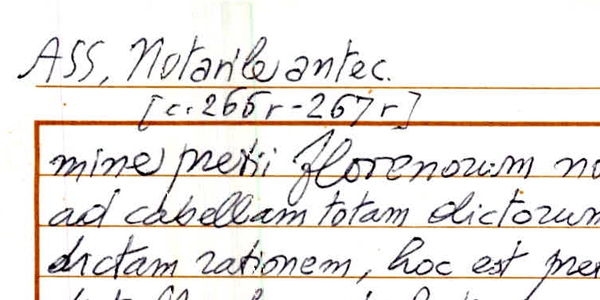 ASS, Notarile antec.
[c. 266r-267r]
mine pretii florenorum
ad cabellam totam dictorum
dictam rationem, hoc est